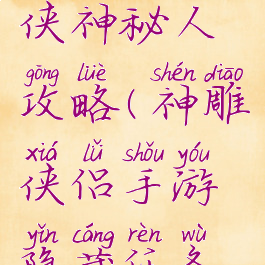 侠神秘人
gōng lüè shén diāo
攻略(神雕
xiá lǚ shǒu yóu
侠侣手游
yǐn cáng rèn wù
隐藏任务